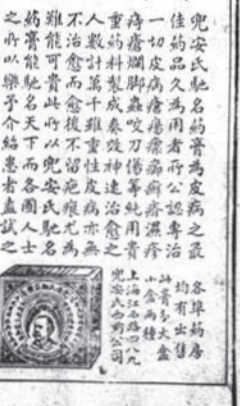 兜安氏馳名葯膏為皮病之最
佳葯品久為用者所公認專治
一切皮病瘡瘍癬疥濕疹
痔瘡爛腳蟲咬刀傷等純用貴
重葯料製成奏效神速治愈之
人數計萬千雖重性皮病亦無
不治愈而愈後不留疤痕尤為
難能可貴此所以兜安氏馳名
葯膏能馳名天下而各國人士
之所以樂予介紹患者盍試之
各埠葯房
均有出售
此膏分大盒
小盒兩種
上海江西路四八九
兜安氏西葯公司